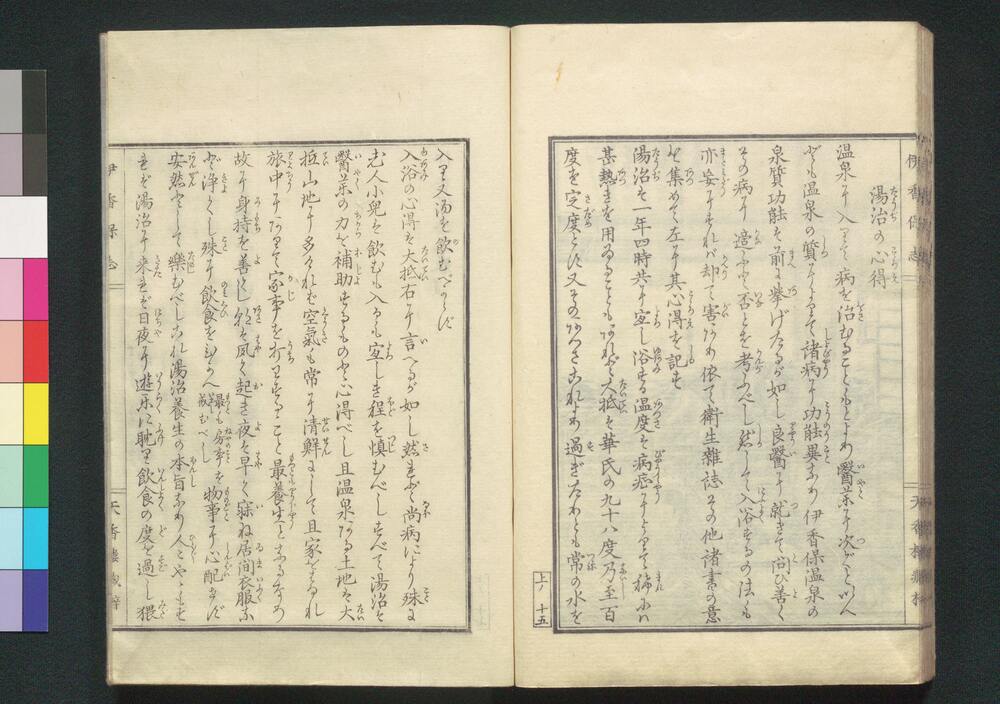 湯治の心得
温泉に入りて病を治むることもとより醫薬に次ぐといへ
ども温泉の質によりて諸病に功能異なり伊香保温泉の
泉質功能は前に挙げたるが如し良醫に就きて問ひ善く
その病に適ふと否とを考ふべし然して入浴するの法も
亦妄にすれば却て害あり依て衛生雜誌その他諸書の意
を集めて左に其心得を記す
湯治は一年四時共に宜し浴する温度は病症によりて稀には
甚熱きを用ゐることもあれど大抵は華氏の九十八度乃至百
度を定度とす又そのあつさこれより過ぎたりとも常の水を
上ノ十五
伊香保志
入り又湯を飲むべからず
入浴の心得は大抵右に言へるが如し然れども尚病により殊に
老人小兒は飲むも入るも宜しき程を慎むべしすべて湯治は
醫薬の力を補助するものと心得べし且温泉ある土地は大
抵山地に多ければ空氣も常に清鮮にして且家をはなれ
旅中にありて家事を打わするること最養生となるなり
故に身持を善くし朝は夙く起き夜は早く寐ね居間衣服な
ど浄くし殊に飲食をひかへ最も房事を戒むべし物事に心配せず
安然として樂むべしこれ湯治養生の本旨なり人々やゝもすれば
湯治に来れば日夜に遊楽に耽り飲食の度を過し猥
伊香保志
天香樓蔵梓